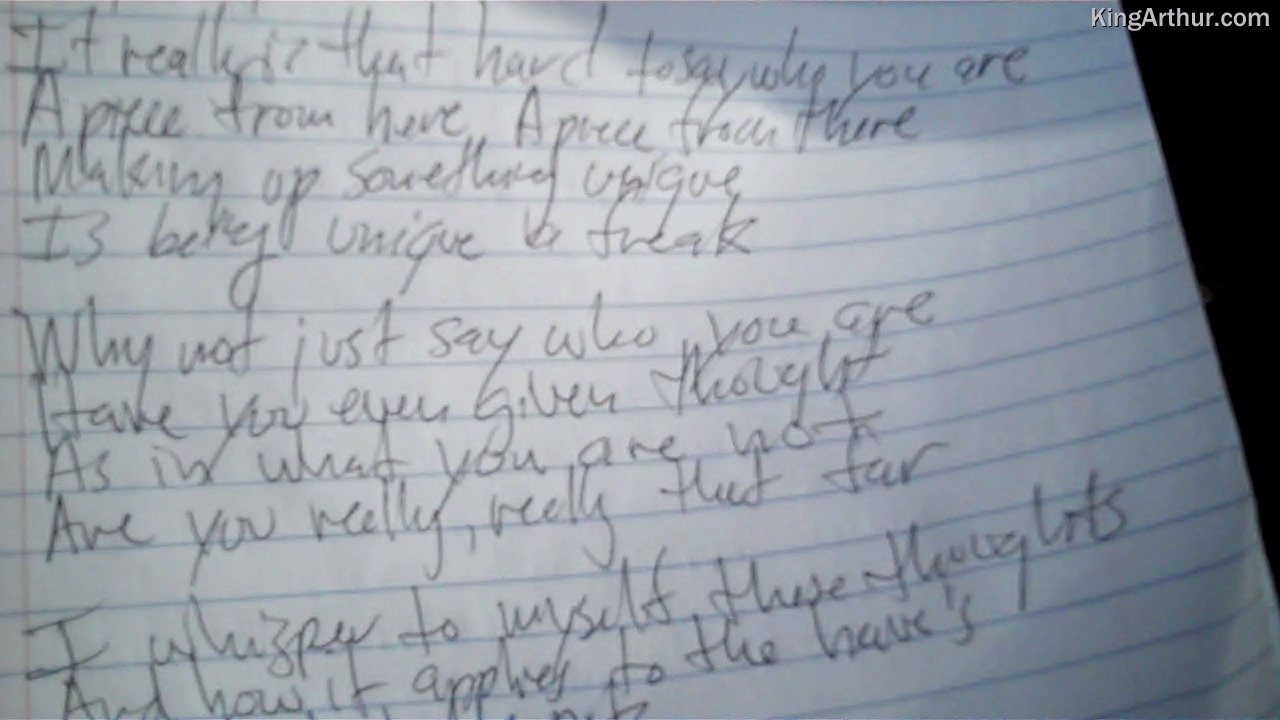 KingArthur.com
It really is that hard to say who you are
A piece from here, A piece from there
Making up something unique
Is being unique a freak
Why not just say who you are
Have you even given thought
As in what you are not
Are you really, really that far
I whisper to myself these thoughts
And how it applies to the have's